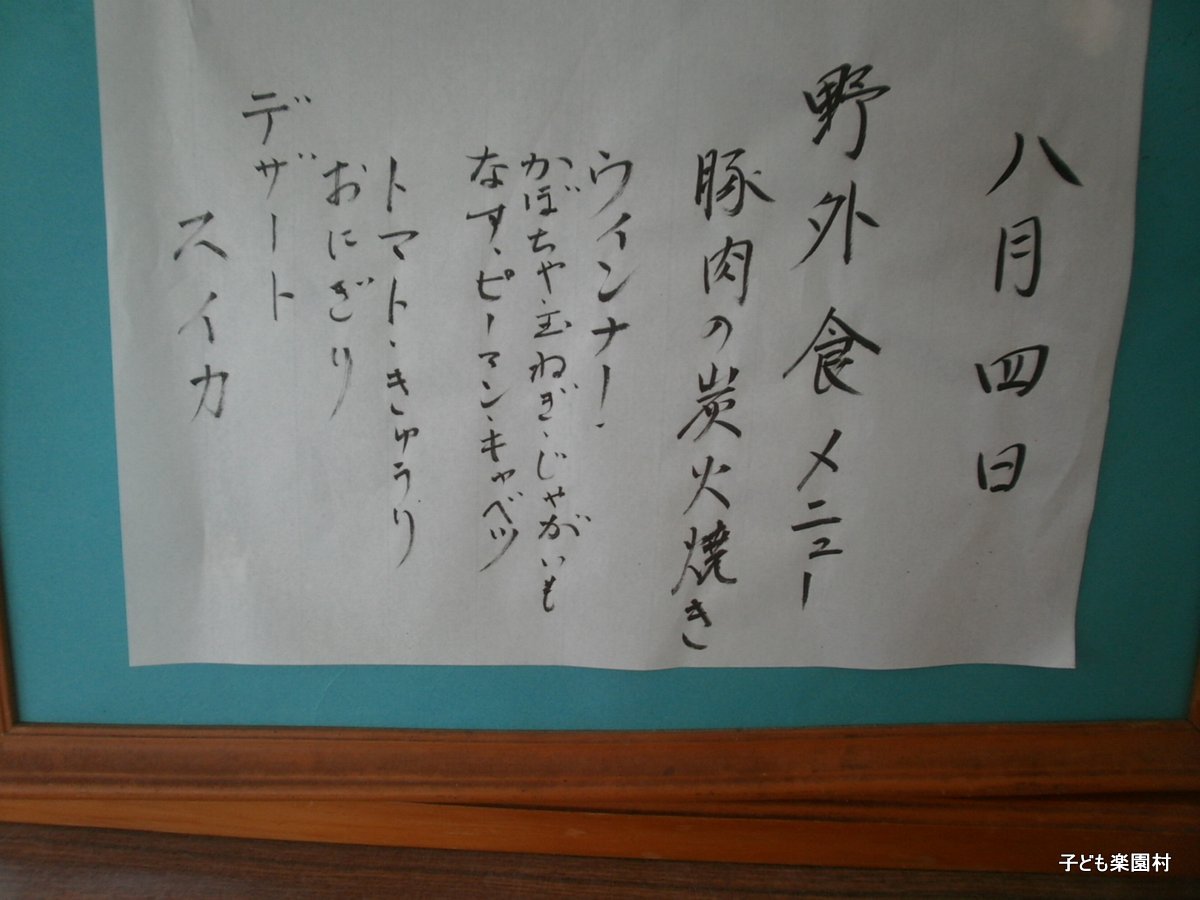 八月四日
野外食メニュー
豚肉の炭火焼き
ウィンナー、
かぼちゃ、玉ねぎ、じゃがいも
なす、ピーマン、キャベツ
トマト、きゅうり
おにぎり
デザート
スイカ
子ども楽園村